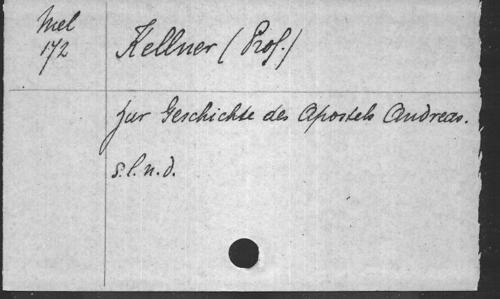 Mel
172
Kellner (Prof.)
zur Geschichte des Apostels Andreas.
s.l.n.d.